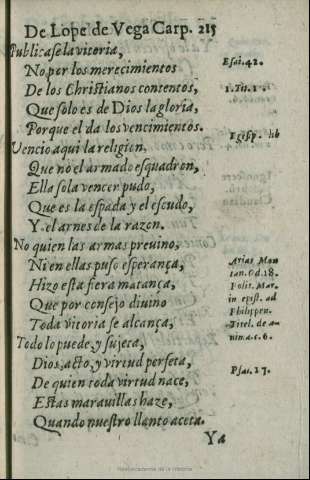 De Lope de Vega Carp. 215
Publicase la vitoria,
No por los merecimientos
Esai. 42.
De los Christianos contentos,
1. Tit. 1.
Que solo es de Dios la gloria,
Porque el da los vencimientos.
Egisp. lib
Vencio aqui la religion,
Que no el armado esquadron,
Ella sola vencer pudo,
Que es la espada y el escudo,
Y el arnes de la razon.
No quien las armas preuino,
Ni en ellas puso esperança,
Arias Mon
tan. Od. 18.
Hizo esta fiera matança,
Polit. Mar.
Que por consejo diuino
in epist. ad
Philippen.
Toda vitoria se alcança,
Titel. de a-
nim. a. c. 6.
Todo lo puede, y sujeta,
Dios, acto, y virtud perfeta,
Psai. 17.
De quien toda virtud nace,
Estas marauillas haze,
Quando nuestro llanto aceta.
Ya